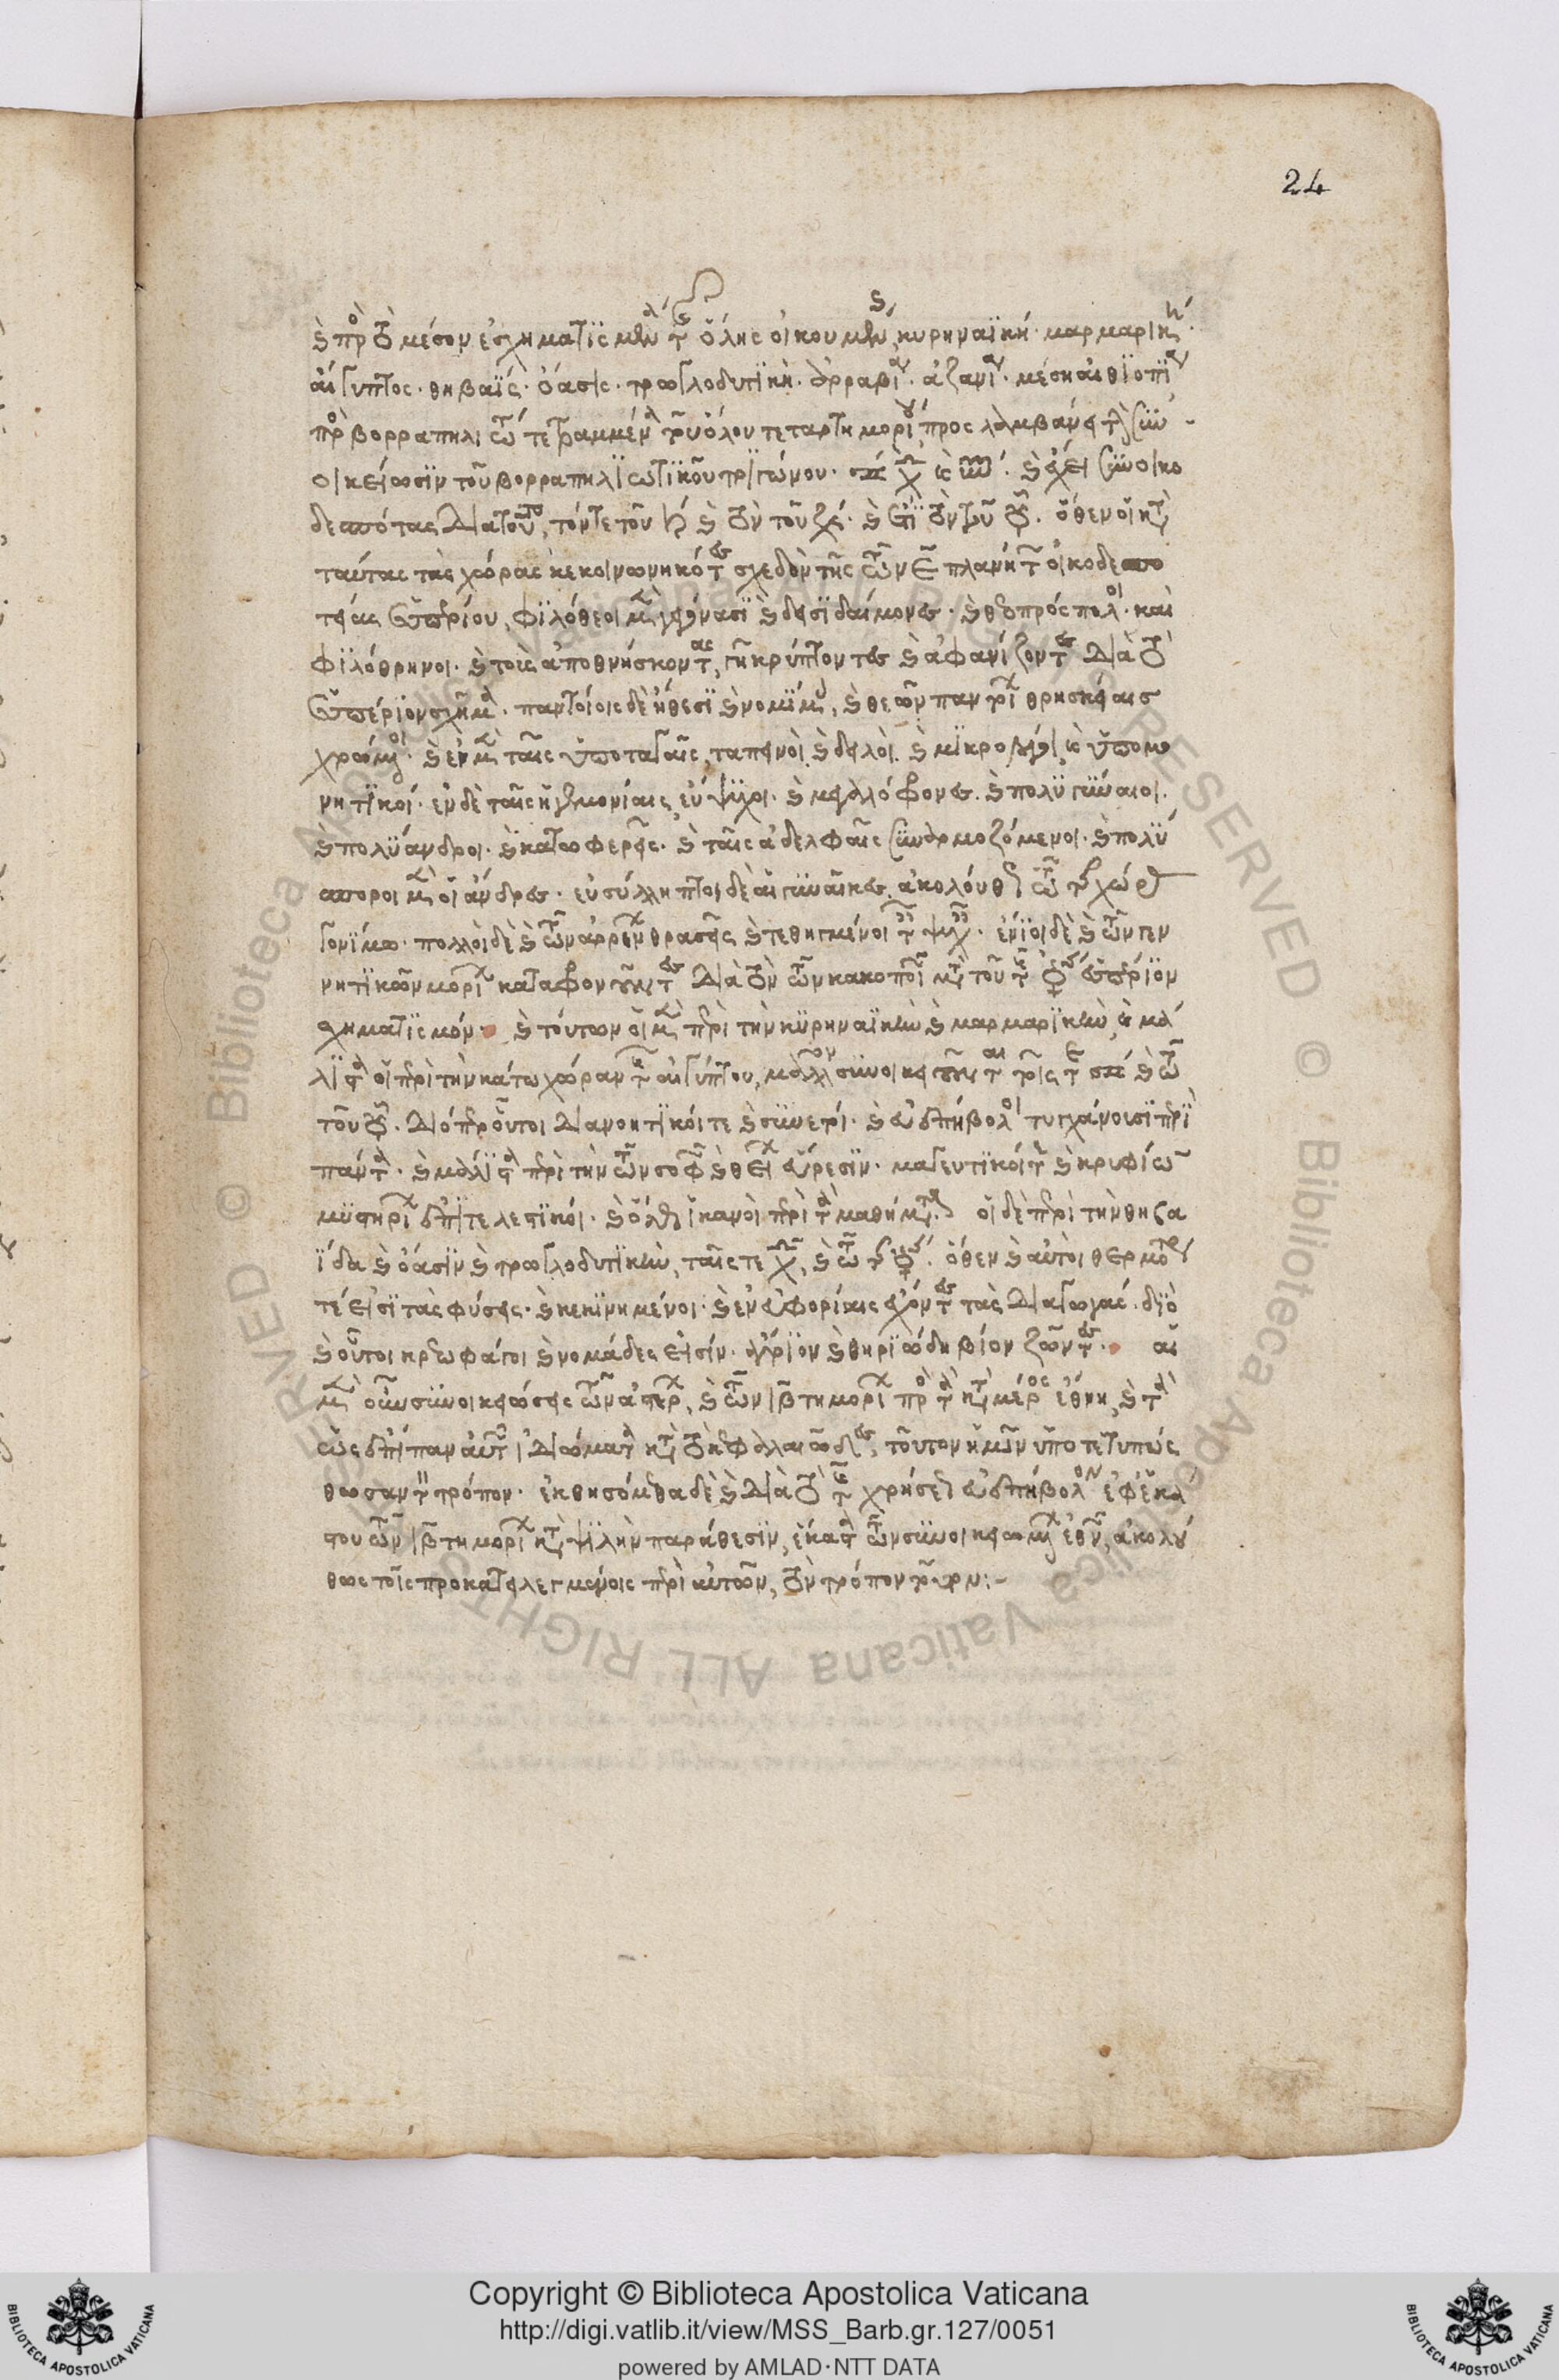 24
καὶ πρὸς τὸ μέσον ἐσχηματισμένα τῆς ὅλης οἰκουμένης, κυρηναϊκή· μαρμαρική·
αἴγυπτος· θηβαΐς· ὄασις· τρωγλοδυτικὴ· ἀρραβία· ἀζανία· μέση αἰθιοπία
πρὸς βορραπηλιώτην τετραμμένα τοῦ ὅλου τεταρτημορίου, προσλαμβάνει τὴν συν
οικείωσιν τοῦ βορραπηλιωτικοῦ τριγώνου· ♊ ♎ καὶ ♒· καὶ ἔχει συνοικο
δεσπότας διὰ τοῦτο, τόν τε τοῦ ♄ καὶ τὸν τοῦ ♃· καὶ ἔτι τὸν τοῦ ☿. ὅθεν οἱ κατὰ
ταύτας τὰς χώρας κεκοινωνηκότες σχεδὸν τῆς τῶν ε πλανητῶν οἰκοδεσπο
τείας ἑσπερίου, φιλόθεοι μὲν γεγόνασι καὶ δεισιδαίμονες· καὶ θεοπρόσπολοι· καὶ
φιλόθρηνοι· καὶ τοὺς ἀποθνήσκοντας, γῇ κρύπτοντες καὶ ἀφανίζοντες διὰ τὸ
ἑσπέριον σχῆμα· παντοίοις δὲ ἤθεσι καὶ νομίμοις, καὶ θεῶν παντοίων θρησκείαις
χρώμενοι· καὶ ἐν μὲν ταῖς ὑποταγαῖς, ταπεινοὶ καὶ δειλοὶ καὶ μικρολόγοι καὶ ὑπομο
νητικοί· ἐν δὲ ταῖς ἡγεμονίαις, εὔψυχοι· καὶ μεγαλόφρονες. καὶ πολυγύναιοι.
καὶ πολύανδροι· καὶ καταφερεῖς· καὶ ταῖς ἀδελφαῖς συναρμοζόμενοι· καὶ πολύ
σποροι μὲν οἱ ἄνδρες· εὐσύλληπτοι δὲ αἱ γυναῖκες. ἀκολούθως τῷ τῆς χώρας
γονίμῳ· πολλοὶ δὲ καὶ τῶν ἀρρένων θρασεῖς καὶ τεθηγμένοι ταῖς ψυχαῖς· ἔνιοι δὲ καὶ τῶν γεν
νητικῶν μορίων καταφρονοῦντες διὰ τὸν τῶν κακοποιῶν μετὰ τοῦ τῆς ♀ ἑσπέριον
σχηματισμόν· καὶ τούτων οἱ μὲν περὶ τὴν κυρηναϊκὴν καὶ μαρμαρικὴν, καὶ μά
λιστα οἱ περὶ τὴν κάτω χώραν τῆς αἰγύπτου, μᾶλλον συνοικειοῦνται τοῖς τε ♊ καὶ τῷ
τοῦ ☿. διόπερ οὗτοι διανοητικοί τε καὶ συνετοί· καὶ εὐεπήβολοι τυγχάνουσι περὶ
πάντα· καὶ μάλιστα περὶ τὴν τῶν σοφῶν καὶ θείων εὕρεσιν· μαγευτικοί τε καὶ κρυφίων
μυστηρίων ἐπιτελεστικοί· καὶ ὅλως ἱκανοὶ περὶ τὰ μαθήματα οἱ δὲ περὶ τὴν θηβα
ΐδα καὶ ὄασιν καὶ τρωγλοδυτικὴν, ταῖς τε ♎, καὶ τῷ τῆς ♀· ὅθεν καὶ αὐτοὶ θερμότεροί
τέ εἰσι τὰς φύσεις· καὶ κεκινημένοι· καὶ ἐν εὐφορίαις ἔχοντες τὰς διαγωγάς· διὸ
καὶ οὗτοι κρεωφάγοι καὶ νομάδες εἰσίν· ἄγριον καὶ θηριώδη βίον ζῶντες· αἱ
μὲν οὖν συνοικειώσεις τῶν ἀστέρων, καὶ τῶν ιβτημορίων πρὸς τὰ κατὰ μέρος ἔθνη, καὶ τὰ
ὡς ἐπίπαν αὐτῶν ἰδιώματα κατὰ τὸ κεφαλαιῶδες, τοῦτον ἡμῖν ὑποτετυπώσ
θωσαν τὸν τρόπον· ἐκθησόμεθα δὲ καὶ διὰ τὸ τῆς χρήσεως εὐεπήβολον ἐφ᾽ ἑκά
στου τῶν ιβτημορίων κατὰ ψιλὴν παράθεσιν, ἕκαστα τῶν συνοικειωμένων ἐθνῶν, ἀκολού
θως τοῖς προκατειλεγμένοις περὶ αὐτῶν, τὸν τρόπον τοῦτον:-
Copyright © Biblioteca Apostolica Vaticana
http://digi.vatlib.it/view/MSS_Barb.gr.127/0051
powered by AMLAD·NTT DATA